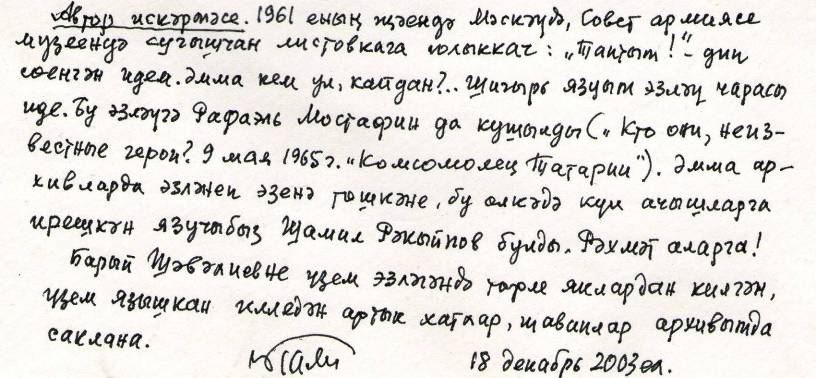 Автор искәрмәсе. 1961 елның җәендә Мәскәүдә, Совет армиясе
музеенда сугышчан листовкага юлыккач: „Таптым!" – дип
сөенгән идем. Әмма кем ул, кайдан?.. Шигырь язуым эзләү чарасы
иде. Бу эзләүгә Рафаэль Мостафин да кушылды („Кто они, неиз-
вестные герои? 9 мая 1965 г. „Комсомолец Татарии"). Әмма ар-
хивларда эзләнеп эзенә төшкәне, бу өлкәдә күп ачышларга
ирешкән язучыбыз Шамил Рәкыйпов булды. Рәхмәт аларга!
Барый Шәвәлиевне үзем эзләгәндә төрле яклардан килгән,
үзем язышкан илледән артык хатлар, җаваплар архивымда
саклана.
18 декабрь 2003 ел.